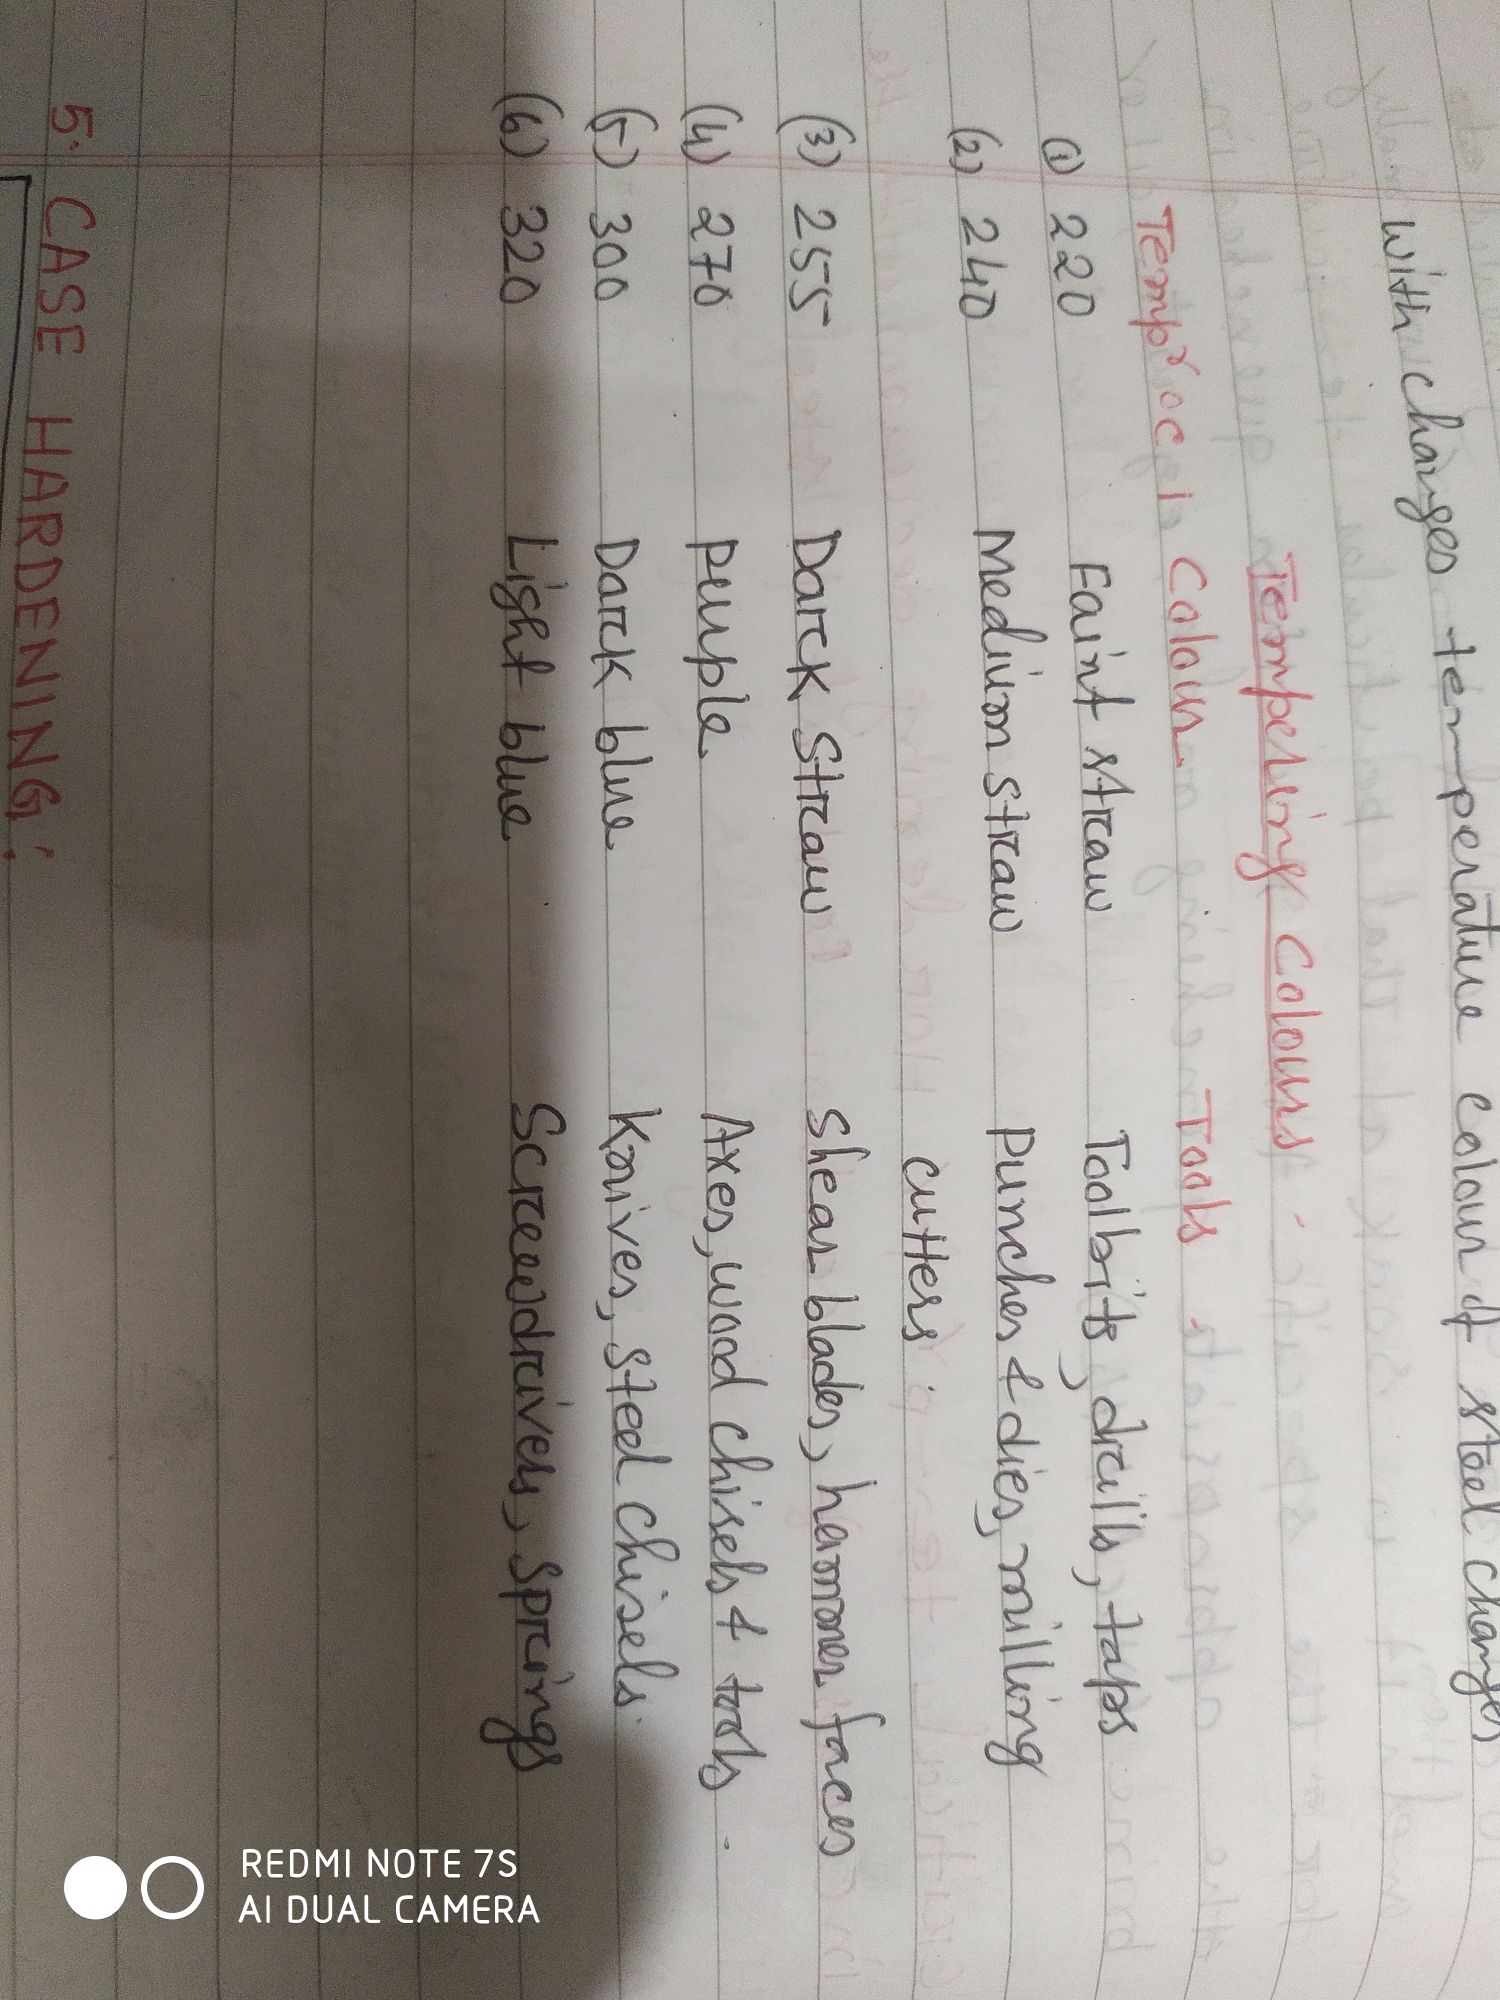 with changes temperature colour of steel changes
Tempering Colours
Tempr °C Colour Tools
(1) 220 Faint straw Toolbits, drills, taps
(2) 240 Medium straw Punches & dies, milling
cutters.
(3) 255 Dark Straw shear blades, hammer faces
(4) 270 purple Axes, wood chisels & tools.
(5) 300 Dark blue Knives, steel chisels.
(6) 320 Light blue Screwdrivers, springs
5. CASE HARDENING:
REDMI NOTE 7S
AI DUAL CAMERA